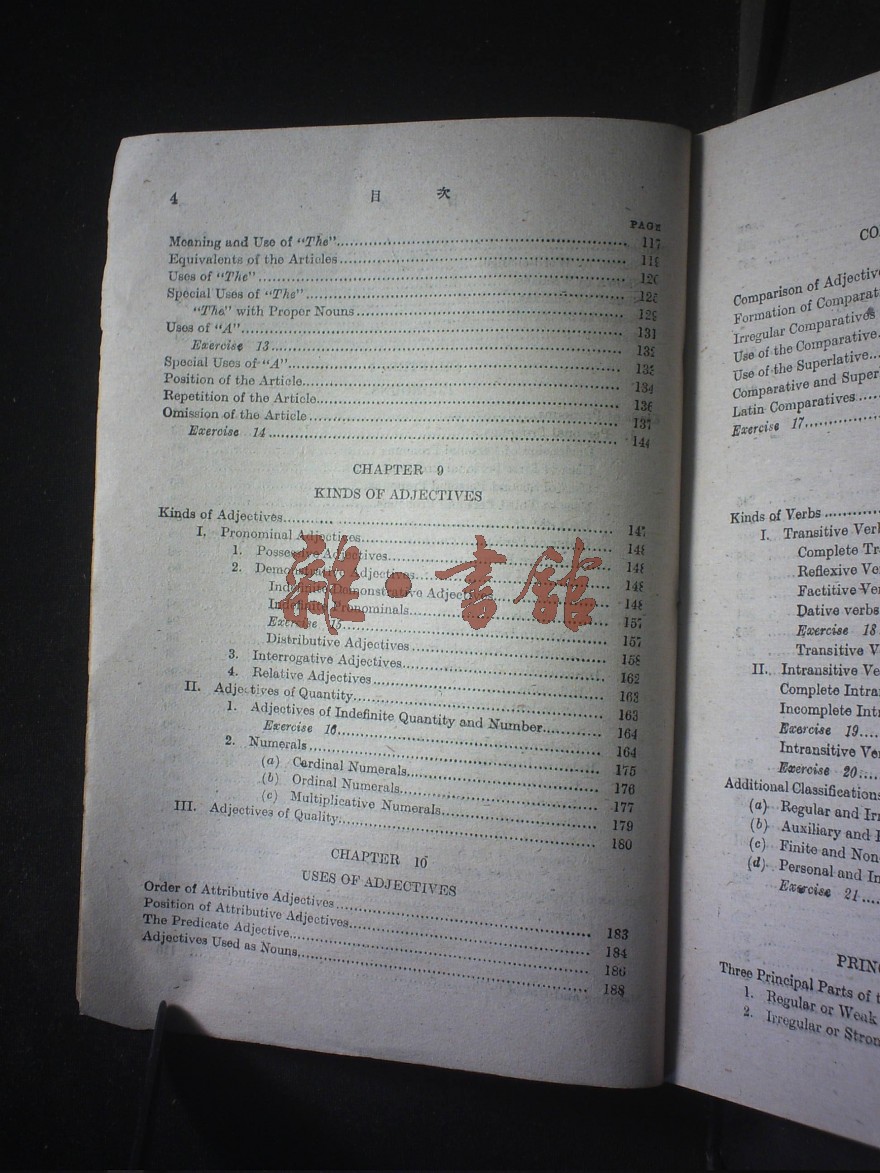 4 目 次
PAGE
Meaning and Use of "The" 117
Equivalents of the Articles
Uses of "The"
Special Uses of "The"
"The" with Proper Nouns
Uses of "A" 131
Exercise 13
Special Uses of "A"
Position of the Article 134
Repetition of the Article 136
Omission of the Article 137
Exercise 14 144
CHAPTER 9
KINDS OF ADJECTIVES
Kinds of Adjectives 147
I. Pronominal Adjectives
1. Possessive Adjectives
2. Demonstrative Adjectives
Indefinite Demonstrative Adjectives
Indefinite Pronominals
Exercise 15 157
Distributive Adjectives 157
3. Interrogative Adjectives 158
4. Relative Adjectives 162
II. Adjectives of Quantity 163
1. Adjectives of Indefinite Quantity and Number 163
Exercise 16 164
2. Numerals 164
(a) Cardinal Numerals 175
(b) Ordinal Numerals 176
(c) Multiplicative Numerals 177
III. Adjectives of Quality 179
180
CHAPTER 10
USES OF ADJECTIVES
Order of Attributive Adjectives 183
Position of Attributive Adjectives 184
The Predicate Adjective 186
Adjectives Used as Nouns 188
雜·書館
CO
Comparison of Adjectiv
Formation of Comparat
Irregular Comparatives
Use of the Comparative
Use of the Superlative
Comparative and Super
Latin Comparatives
Exercise 17
Kinds of Verbs
I. Transitive Verl
Complete Tr
Reflexive Ve
Factitive Ve
Dative verbs
Exercise 18
Transitive V
II. Intransitive Ve
Complete Intra
Incomplete Int
Exercise 19
Intransitive Ve
Exercise 20
Additional Classifications
(a) Regular and Ir
(b) Auxiliary and
(c) Finite and Non
(d) Personal and Im
Exercise 21
PRIN
Three Principal Parts of t
1. Regular or Weak
2. Irregular or Stron